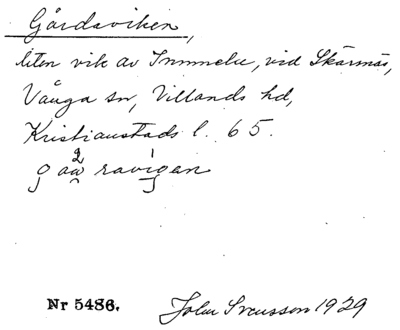 Gårdaviken,
liten vik av Immeln, vid Skärmäs,
Vånga sn, Villands hd,
Kristianstads l. 65.
Nr 5486.
John Svensson 1929